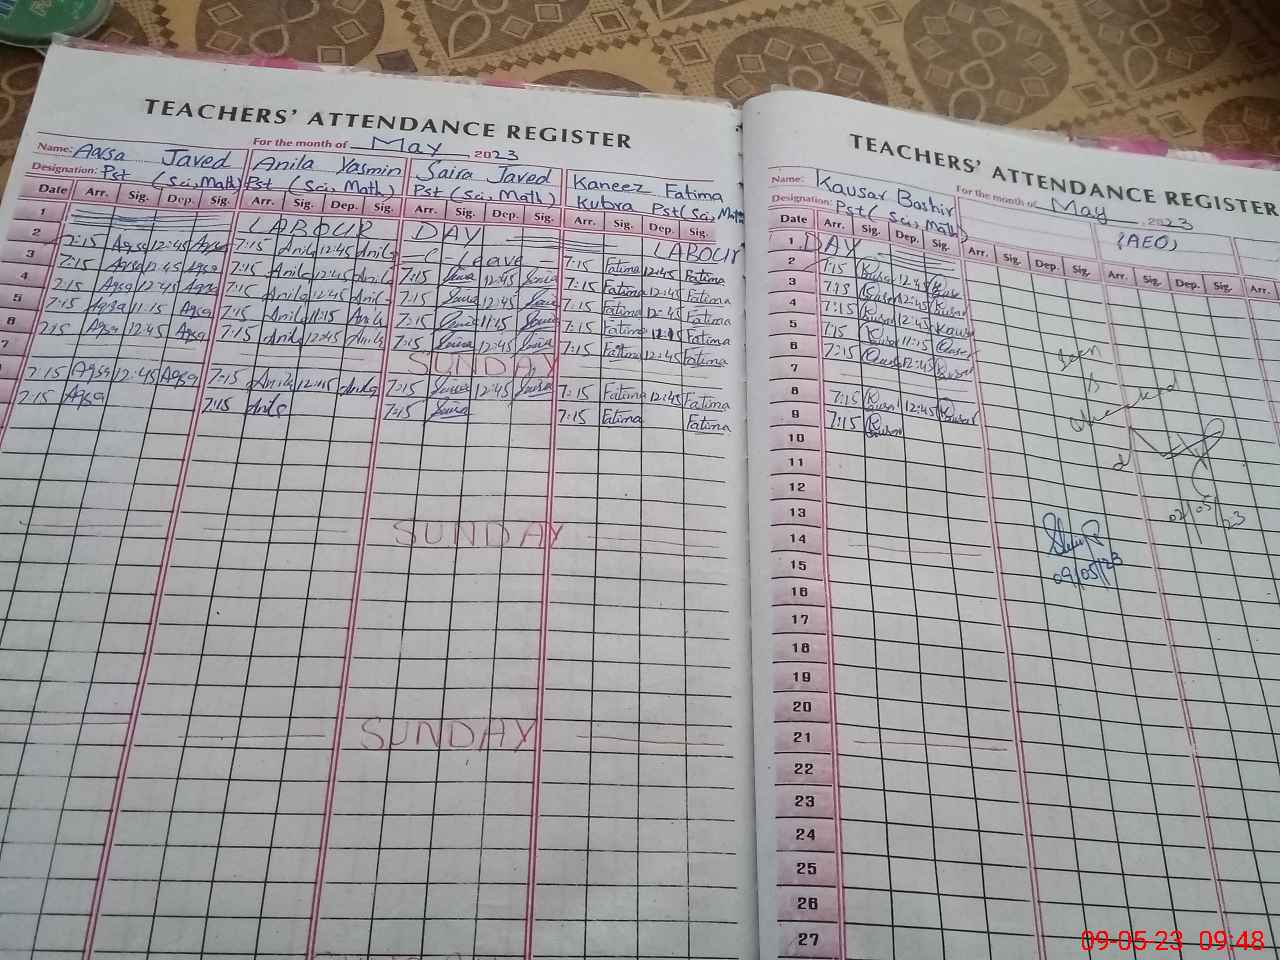 TEACHERS' ATTENDANCE REGISTER
For the month of May 2023
Name: Aqsa Javed Anila Yasmin Saira Javed Kaneez Fatima
Designation: Pst (Sci, Math) Pst (Sci, Math) Pst (Sci, Math) Kubra Pst (Sci, Math)
Date Arr. Sig. Dep. Sig. Arr. Sig. Dep. Sig. Arr. Sig. Dep. Sig. Arr. Sig. Dep. Sig.
1 LABOUR DAY LABOUR
2 7:15 Aqsa 12:45 Aqsa 7:15 Anila 12:45 Anila C Leave 7:15 Fatima 12:45 Fatima
3 7:15 Aqsa 12:45 Aqsa 7:15 Anila 12:45 Anila 7:15 Saira 12:45 Saira 7:15 Fatima 12:45 Fatima
4 7:15 Aqsa 12:45 Aqsa 7:15 Anila 12:45 Anila 7:15 Saira 12:45 Saira 7:15 Fatima 12:45 Fatima
5 7:15 Aqsa 11:15 Aqsa 7:15 Anila 11:15 Anila 7:15 Saira 11:45 Saira 7:15 Fatima Fatima
6 7:15 Aqsa 12:45 Aqsa 7:15 Anila 12:45 Anila 7:15 Saira 12:45 Saira 7:15 Fatima 12:45 Fatima
7 SUNDAY
7:15 Aqsa 12:45 Aqsa 7:15 Anila Anila 7:15 Saira 12:45 Saira 7:15 Fatima 12:45 Fatima
7:15 Aqsa 7:15 Anila 7:15 Saira 7:15 Fatima Fatima
SUNDAY
SUNDAY
TEACHERS' ATTENDANCE REGISTER
For the month of May 2023
Name: Kausar Bashir
Designation: Pst (Sci, Math) (AEO)
Date Arr. Sig. Dep. Sig. Arr. Sig. Dep. Sig. Arr. Sig. Dep. Sig. Arr.
1 DAY
2 7:15 Kausar 12:45 Kausar
3 7:15 Kausar 12:45 Kausar
4 7:15 Kausar 12:45 Kausar
5 7:15 Kausar 11:15 Kausar
6 7:15 Kausar 12:45 Kausar
7
8 7:15 Kausar 12:45 Kausar
9 7:15 Kausar
10
11
12
13
14
15
16
17
18
19
20
21
22
23
24
25
26
27
Seen
09/05/23
09-05-23 09:48